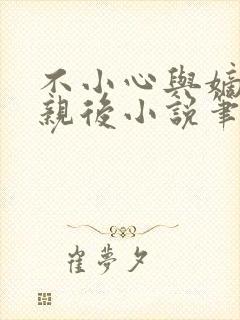 不小心與嫡
親後小說筆
崔夢夕